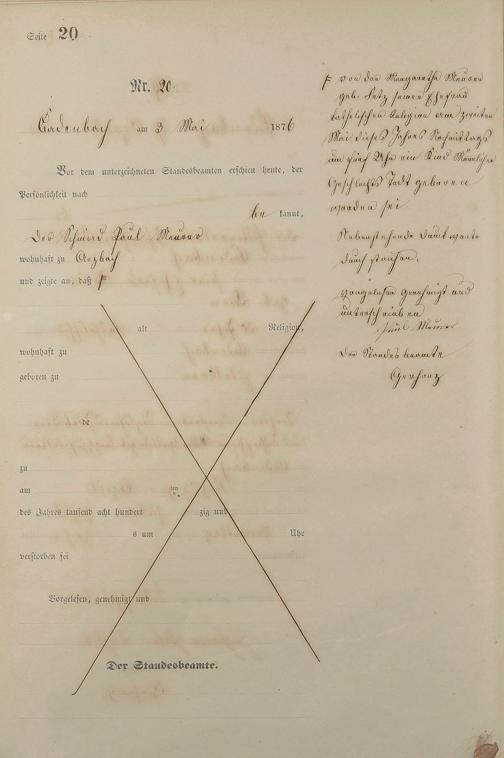 Seite 20
Nr. 20.
Cadenbach am 3 Mai 1876
Vor dem unterzeichneten Standesbeamten erschien heute, der
Persönlichkeit nach
be kannt,
Der Schmied Paul Meurer
wohnhaft zu Arzbach
und zeigte an, daß F
alt Religion,
wohnhaft zu
geboren zu
de
zu
am
des Jahres tausend acht hundert zig und
s um Uhr
verstorben sei
Vorgelesen, genehmigt und
Der Standesbeamte.
F von der Margaretha Meurer
geb. seiner Ehefrau
katholischen Religion am zweiten
Mai dieses Jahres Nachmittags
um fünf Uhr ein Kind Männlichen
Geschlechts Todt geboren
worden sei
Nebenstehende Druckworte
durchstrichen.
Vorgelesen Genehmigt und
unterschrieben
Paul Meurer
Der Standesbeamte